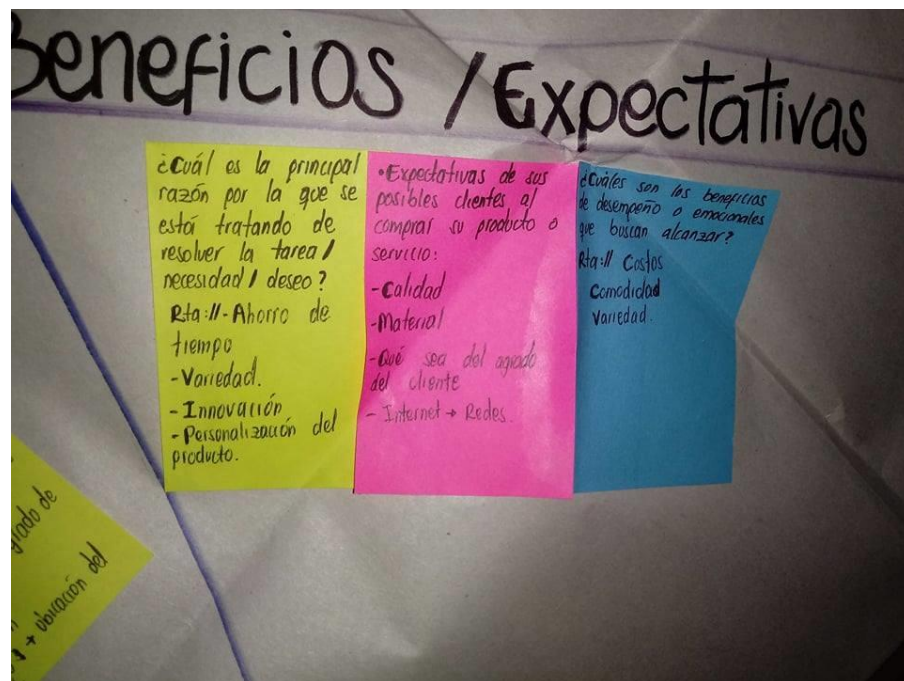 Beneficios / Expectativas
¿Cuál es la principal
razón por la que se
está tratando de
resolver la tarea /
necesidad / deseo?
Rta:// - Ahorro de
tiempo
- Variedad.
- Innovación
- Personalización del
producto.
• Expectativas de sus
posibles clientes al
comprar su producto o
servicio:
- Calidad
- Material
- Qué sea del agrado
del cliente
- Internet → Redes.
¿Cuáles son los beneficios
de desempeño o emocionales
que buscan alcanzar?
Rta:// Costos
Comodidad
Variedad.
de
→ ubicación del